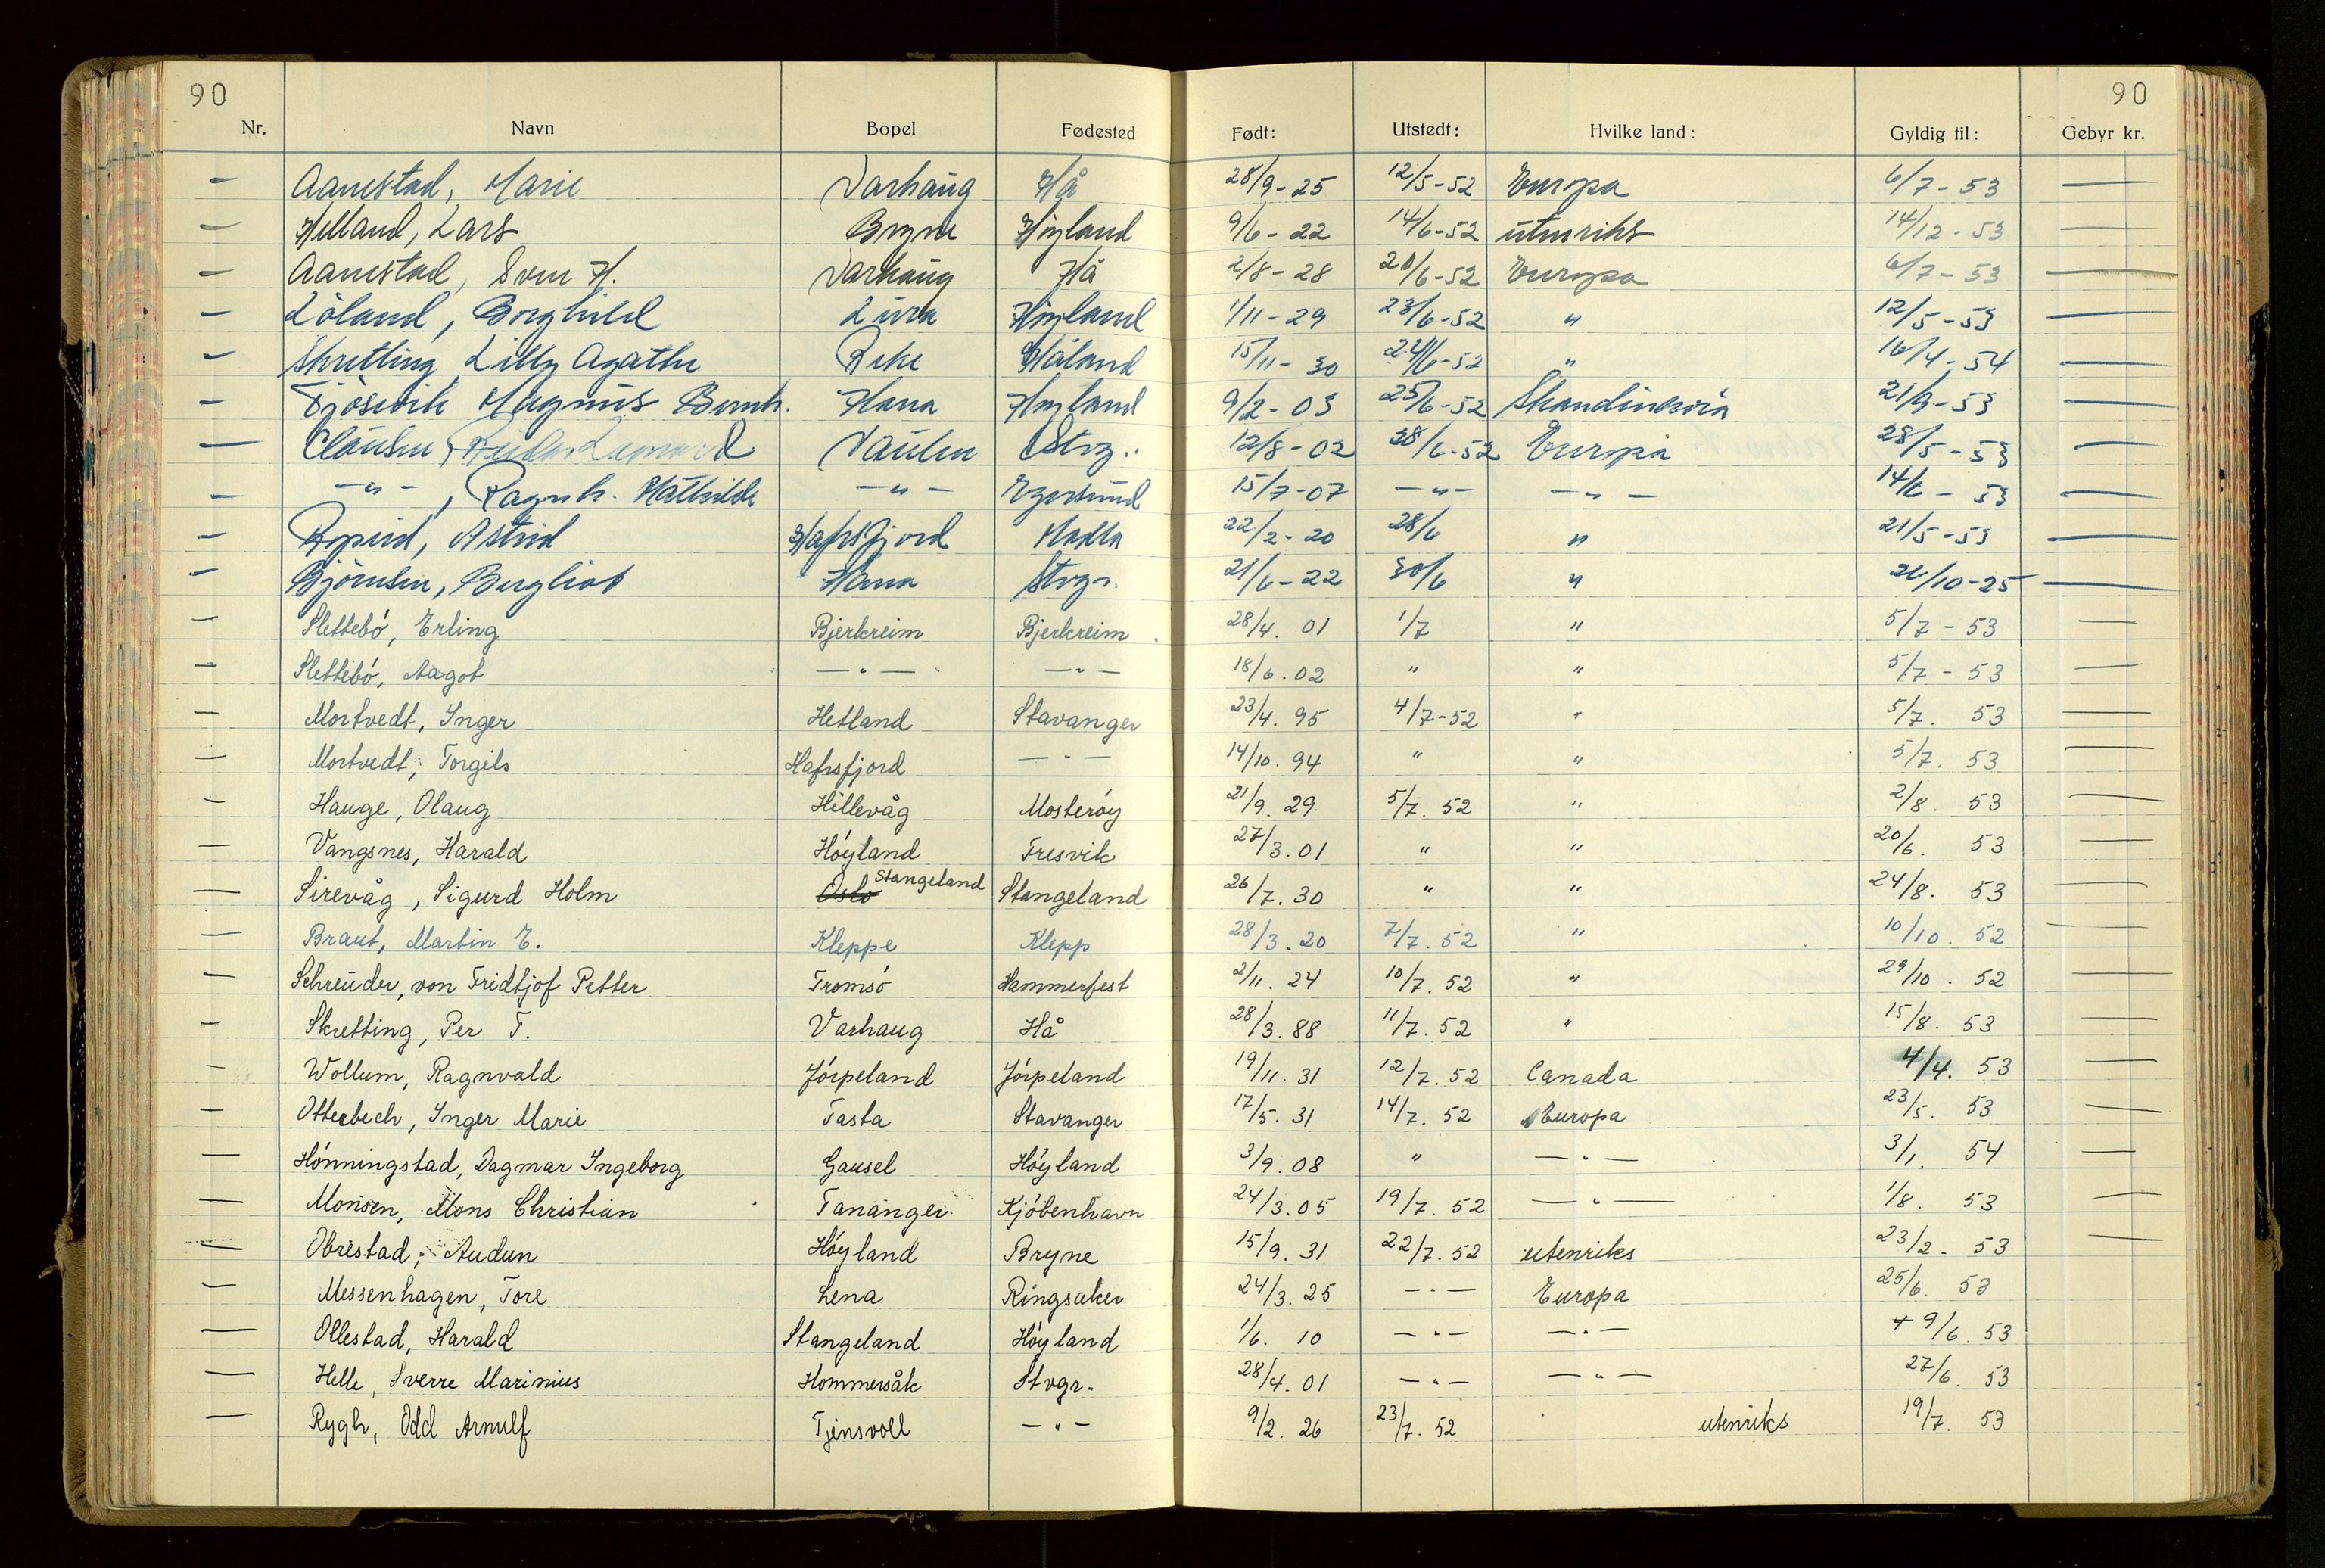 90 90
Nr. Navn Bopel Fødested Født: Utstedt: Hvilke land: Gyldig til: Gebyr kr.
— Aanestad, Marie Varhaug Hå 28/9-25 12/5-52 Europa 6/7-53 —
— Helland, Lars Bryne Høyland 9/6-22 14/6-52 utenriks 14/12-53 —
— Aanestad, Sven H. Varhaug Hå 2/8-28 20/6-52 Europa 6/7-53 —
— Löland, Borghild Lura Høyland 1/11-29 23/6-52 " 12/5-53 —
— Skretting Lilly Agathe Reke Håland 15/11-30 24/6-52 " 16/4-54 —
— Fjösvik Magnus Bernh. Hana Høyland 9/2-03 25/6-52 Skandinavia 21/9-53 —
— Clausen, Reidar Lennard Vaulen Stvg.. 12/8-02 28/6-52 Europa 28/5-53 —
— -"-, Ragnh. Mathilde —"— Egersund 15/7-07 —"— —"— 14/6-53 —
— Ropeid, Astrid Hafrsfjord Madla 22/2-20 28/6 " 21/5-53 —
— Björnsen, Bergliot Hana Stvgr. 21/6-22 30/6 " 26/10-25 —
— Slettebó, Erling Bjerkreim Bjerkreim 28/4. 01 1/7 " 5/7-53 —
— Slettebó, Aagot —"— —"— 18/6. 02 " " 5/7-53 —
— Mortvedt, Inger Hetland Stavanger 23/4. 95 4/7-52 " 5/7. 53 —
— Mortvedt, Torgils Hafrsfjord —"— 14/10. 94 " " 5/7. 53 —
— Hauge, Olaug Hillevåg Mosteróy 21/9. 29 5/7. 52 " 2/8. 53 —
— Vangsnes, Harald Hóyland Fresvik 27/3. 01 " " 20/6. 53 —
— Sirevåg, Sigurd Holm Oslo Stangeland Stangeland 26/7. 30 " " 24/8. 53 —
— Braut, Martin E. Kleppe Klepp 28/3. 20 7/7. 52 " 10/10. 52 —
— Schreüder, von Fridtjof Petter Tromsó Hammerfest 2/11. 24 10/7. 52 " 29/10. 52 —
— Skretting, Per T. Varhaug Hå 28/3. 88 11/7. 52 " 15/8. 53 —
— Wollum, Ragnvald Jórpeland Jórpeland 19/11. 31 12/7. 52 Canada 4/4. 53 —
— Otterbech, Inger Marie Tasta Stavanger 17/5. 31 14/7. 52 Europa 23/5. 53 —
— Hónningstad, Dagmar Ingeborg Gausel Hóyland 3/9. 08 " —"— 3/1. 54 —
— Monsen, Mons Christian Tananger Kjóbenhavn 24/3. 05 19/7. 52 —"— 1/8. 53 —
— Obrestad, Audun Hóyland Bryne 15/9. 31 22/7. 52 utenriks 23/2. 53 —
— Messenhagen, Tore Lena Ringsaker 24/3. 25 —"— Europa 25/6. 53
— Ollestad, Harald Stangeland Hóyland 1/6. 10 —"— —"— 9/6. 53
— Helle, Sverre Marinius Hommersåk Stvgr. 28/4. 01 —"— —"— 27/6. 53
— Rygh, Odd Arnulf Tjensvoll —"— 9/2. 26 23/7. 52 utenriks 19/7. 53